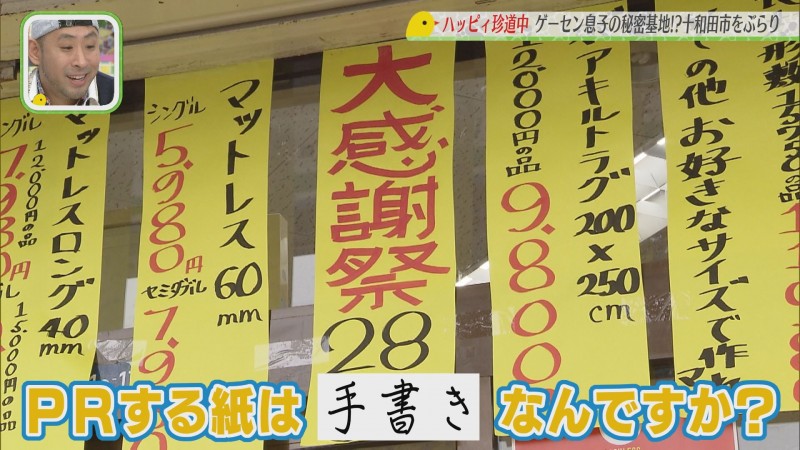 ハッピィ珍道中 ゲーセン息子の秘密基地!?十和田市をぶらり
の他お好きなサイズで作
アキルトラグ200×250cm
12,000円の品
9,800
大感謝祭
28
マットレス60mm
シングル
5,980円
セミダブル
7,9
マットレスロング40mm
ングル
12,000円の品
7,980円
15,000円の品
PRする紙は手書きなんですか?